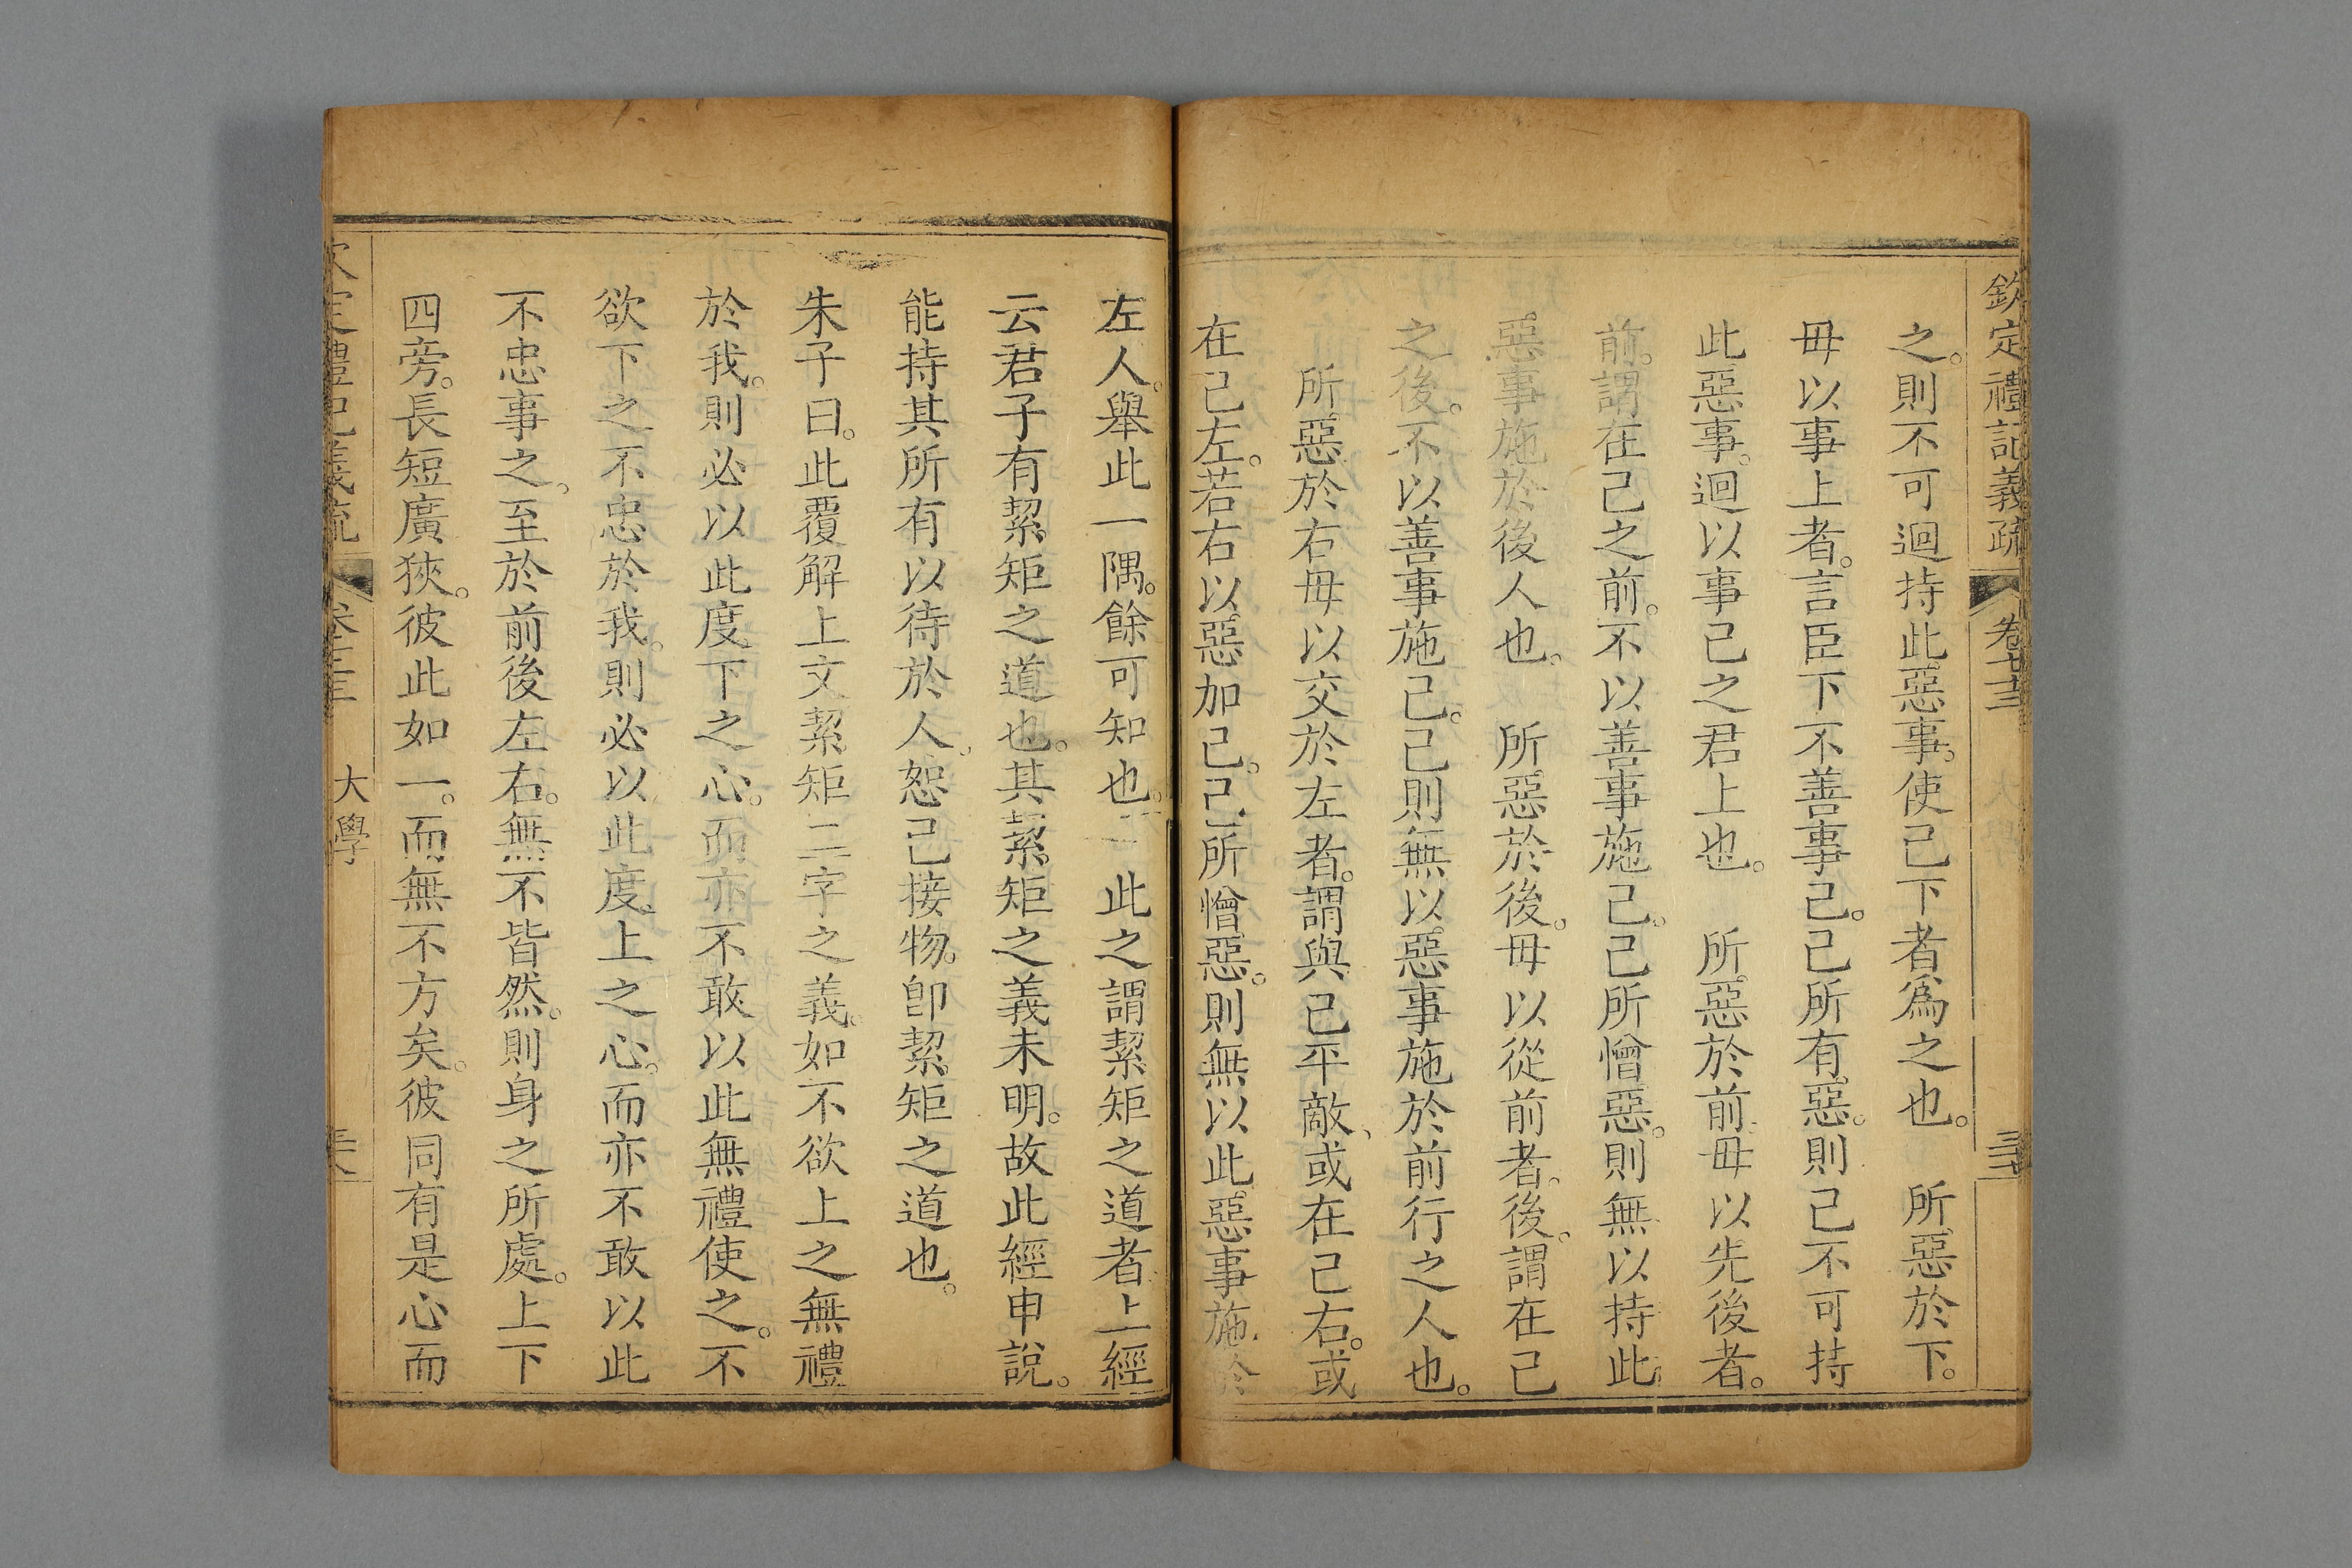 欽定禮記義疏 卷七十三 三十七
之。則不可迴持此惡事。使己下者為之也。 所惡於下。
毋以事上者。言臣下不善事己。己所有惡。則己不可持
此惡事。迴以事己之君上也。 所惡於前毋以先後者。
前。謂在己之前。不以善事施己。己所憎惡。則無以持此
惡事施於後人也。 所惡於後。毋以從前者。後。謂在己
之後。不以善事施己。己則無以惡事施於前行之人也。
所惡於右毋以交於左者。謂與己平敵、或在己右。或
在己左。若右以惡加己。己所憎惡。則無以此惡事施於
左人。舉此一隅。餘可知也。 此之謂絜矩之道者上經
云君子有絜矩之道也。其絜矩之義未明。故此經申說。
能持其所有以待於人、恕己接物。即絜矩之道也。
朱子曰。此覆解上文絜矩二字之義。如不欲上之無禮
於我。則必以此度下之心。而亦不敢以此無禮使之。不
欲下之不忠於我。則必以此度上之心。而亦不敢以此
不忠事之。至於前後左右。無不皆然。則身之所處。上下
四旁。長短廣狹。彼此如一。而無不方矣。彼同有是心而
欽定禮記義疏 卷七十三 大學 三十八